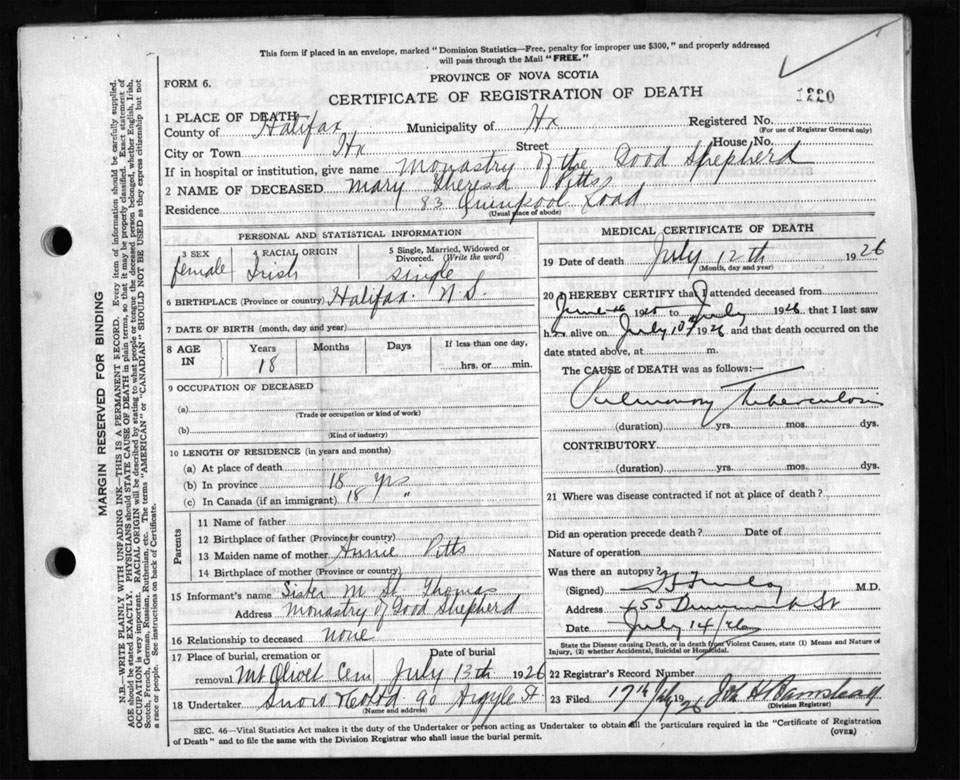 This form if placed in an envelope, marked "Dominion Statistics—Free, penalty for improper use $300," and properly addressed
will pass through the Mail "FREE."
PROVINCE OF NOVA SCOTIA
FORM 6.
CERTIFICATE OF REGISTRATION OF DEATH
1220
1 PLACE OF DEATH
County of Halifax Municipality of Hx Registered No.
(For use of Registrar General only)
City or Town Hx Street House No.
If in hospital or institution, give name Monastry of the Good Shepherd
2 NAME OF DECEASED Mary Theresa Pitts
Residence 83 Quinpool Road
(Usual place of abode)
PERSONAL AND STATISTICAL INFORMATION
3 SEX
female
4 RACIAL ORIGIN
Irish
5 Single, Married, Widowed or
Divorced. (Write the word)
single
6 BIRTHPLACE (Province or country) Halifax. N.S.
7 DATE OF BIRTH (month, day and year)
8 AGE IN
Years Months Days If less than one day,
18 hrs. or min.
9 OCCUPATION OF DECEASED
(a)
(Trade or occupation or kind of work)
(b)
(Kind of industry)
10 LENGTH OF RESIDENCE (in years and months)
(a) At place of death
(b) In province 18 yrs
(c) In Canada (if an immigrant) 18 "
Parents
11 Name of father
12 Birthplace of father (Province or country)
13 Maiden name of mother Annie Pitts
14 Birthplace of mother (Province or country)
15 Informant's name Sister M. St. Thomas
Address Monastry of Good Shepherd
16 Relationship to deceased none
17 Place of burial, cremation or Date of burial
removal Mt Olivet Cem July 13th 1926
18 Undertaker Snow & Co Ltd. 90 Argyle St
(Name and address)
MEDICAL CERTIFICATE OF DEATH
19 Date of death July 12th 1926
(Month, day and year)
20 I HEREBY CERTIFY that I attended deceased from
June 1925 to July 1926 that I last saw
h alive on July 10th 1926 and that death occurred on the
date stated above, at m.
The CAUSE of DEATH was as follows:—
Pulmonary Tuberculosis
(duration) yrs. mos. dys.
CONTRIBUTORY.
(duration) yrs. mos. dys.
21 Where was disease contracted if not at place of death?
Did an operation precede death? Date of
Nature of operation
Was there an autopsy?
(Signed) M.D.
Address St
Date July 14/26
State the Disease causing Death, or in death from Violent Causes, state (1) Means and Nature of
Injury, (2) whether Accidental, Suicidal or Homicidal.
22 Registrar's Record Number
23 Filed 17th July 1926 Barnstead
(Division Registrar)
SEC. 46—Vital Statistics Act makes it the duty of the Undertaker or person acting as Undertaker to obtain all the particulars required in the "Certificate of Registration
of Death" and to file the same with the Division Registrar who shall issue the burial permit.
(OVER)
MARGIN RESERVED FOR BINDING
N.B.—WRITE PLAINLY WITH UNFADING INK—THIS IS A PERMANENT RECORD. Every item of information should be carefully supplied.
AGE should be stated EXACTLY. PHYSICIANS should STATE CAUSE OF DEATH in plain terms, so that it may be properly classified. Exact statement of
OCCUPATION is very important. RACIAL ORIGIN will be described by stating to what people or tongue the deceased person belonged, whether English, Irish,
Scotch, French, German, Russian, Ruthenian, etc. The terms "AMERICAN" or "CANADIAN" SHOULD NOT BE USED as they express citizenship but not
a race or people. See instructions on back of Certificate.